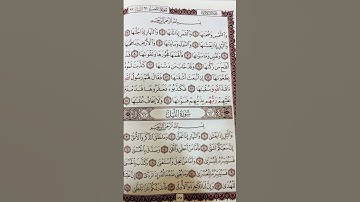 بِسْمِ اللَّهِ الرَّحْمَٰنِ الرَّحِيمِ
وَالشَّمْسِ وَضُحَىٰهَا ١ وَالْقَمَرِ إِذَا تَلَىٰهَا ٢ وَالنَّهَارِ إِذَا جَلَّىٰهَا
٣ وَالَّيْلِ إِذَا يَغْشَىٰهَا ٤ وَالسَّمَاءِ وَمَا بَنَىٰهَا ٥ وَالْأَرْضِ وَمَا طَحَىٰهَا
٦ وَنَفْسٍ وَمَا سَوَّىٰهَا ٧ فَأَلْهَمَهَا فُجُورَهَا وَتَقْوَىٰهَا ٨ قَدْ
أَفْلَحَ مَن زَكَّىٰهَا ٩ وَقَدْ خَابَ مَن دَسَّىٰهَا ١٠ كَذَّبَتْ ثَمُودُ
بِطَغْوَىٰهَا ١١ إِذِ انبَعَثَ أَشْقَىٰهَا ١٢ فَقَالَ لَهُمْ رَسُولُ اللَّهِ
نَاقَةَ اللَّهِ وَسُقْيَٰهَا ١٣ فَكَذَّبُوهُ فَعَقَرُوهَا فَدَمْدَمَ
عَلَيْهِمْ رَبُّهُم بِذَنبِهِمْ فَسَوَّىٰهَا ١٤ وَلَا يَخَافُ عُقْبَٰهَا ١٥
سُورَةُ اللَّيْلِ
بِسْمِ اللَّهِ الرَّحْمَٰنِ الرَّحِيمِ
وَالَّيْلِ إِذَا يَغْشَىٰ ١ وَالنَّهَارِ إِذَا تَجَلَّىٰ ٢ وَمَا خَلَقَ الذَّكَرَ وَالْأُنثَىٰ
٣ إِنَّ سَعْيَكُمْ لَشَتَّىٰ ٤ فَأَمَّا مَنْ أَعْطَىٰ وَاتَّقَىٰ ٥ وَصَدَّقَ بِالْحُسْنَىٰ
٦ فَسَنُيَسِّرُهُ لِلْيُسْرَىٰ ٧ وَأَمَّا مَن بَخِلَ وَاسْتَغْنَىٰ ٨ وَكَذَّبَ بِالْحُسْنَىٰ
٩ فَسَنُيَسِّرُهُ لِلْعُسْرَىٰ ١٠ وَمَا يُغْنِي عَنْهُ مَالُهُ إِذَا تَرَدَّىٰ ١١ إِنَّ عَلَيْنَا
لَلْهُدَىٰ ١٢ وَإِنَّ لَنَا لَلْآخِرَةَ وَالْأُولَىٰ ١٣ فَأَنذَرْتُكُمْ نَارًا تَلَظَّىٰ